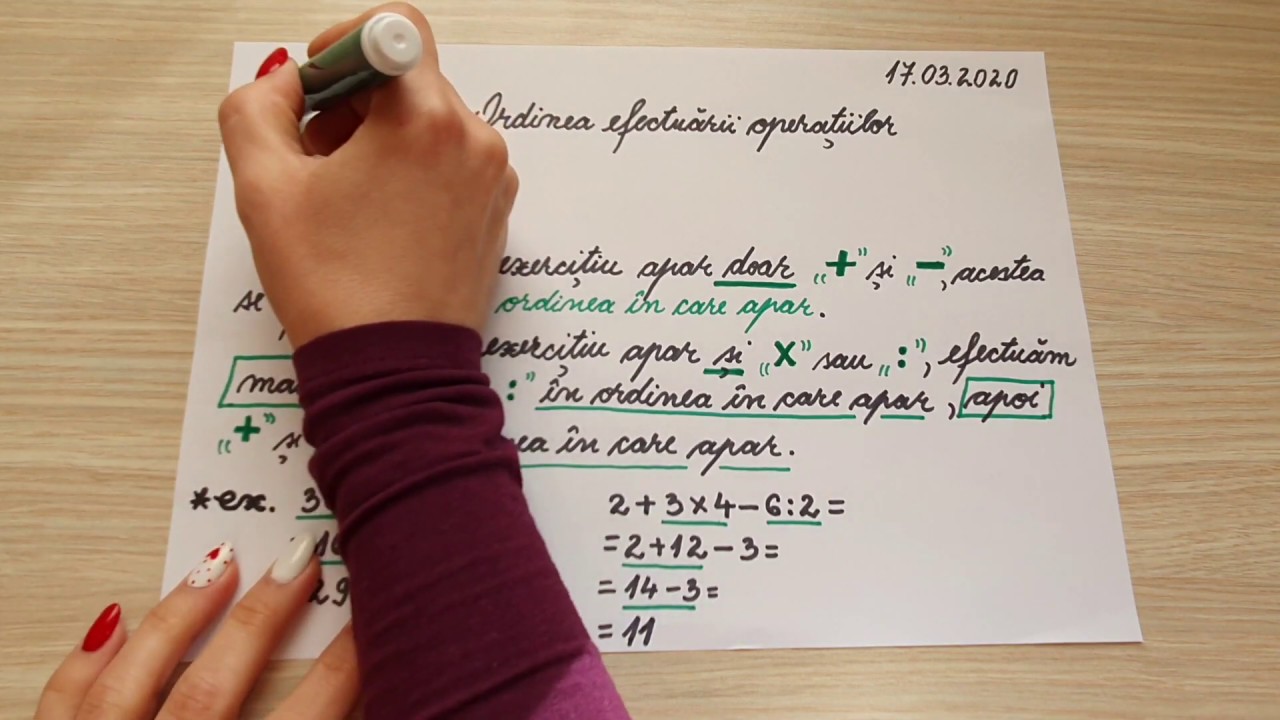 17.03.2020
Ordinea efectuării operațiilor
exercițiu apar doar „+” și „-”, acestea
se ordinea în care apar.
exercițiu apar și „x” sau „:”, efectuăm
:” în ordinea în care apar, apoi
„+” în care apar.
*ex. 2+3x4-6:2=
=2+12-3=
=14-3=
29 =11